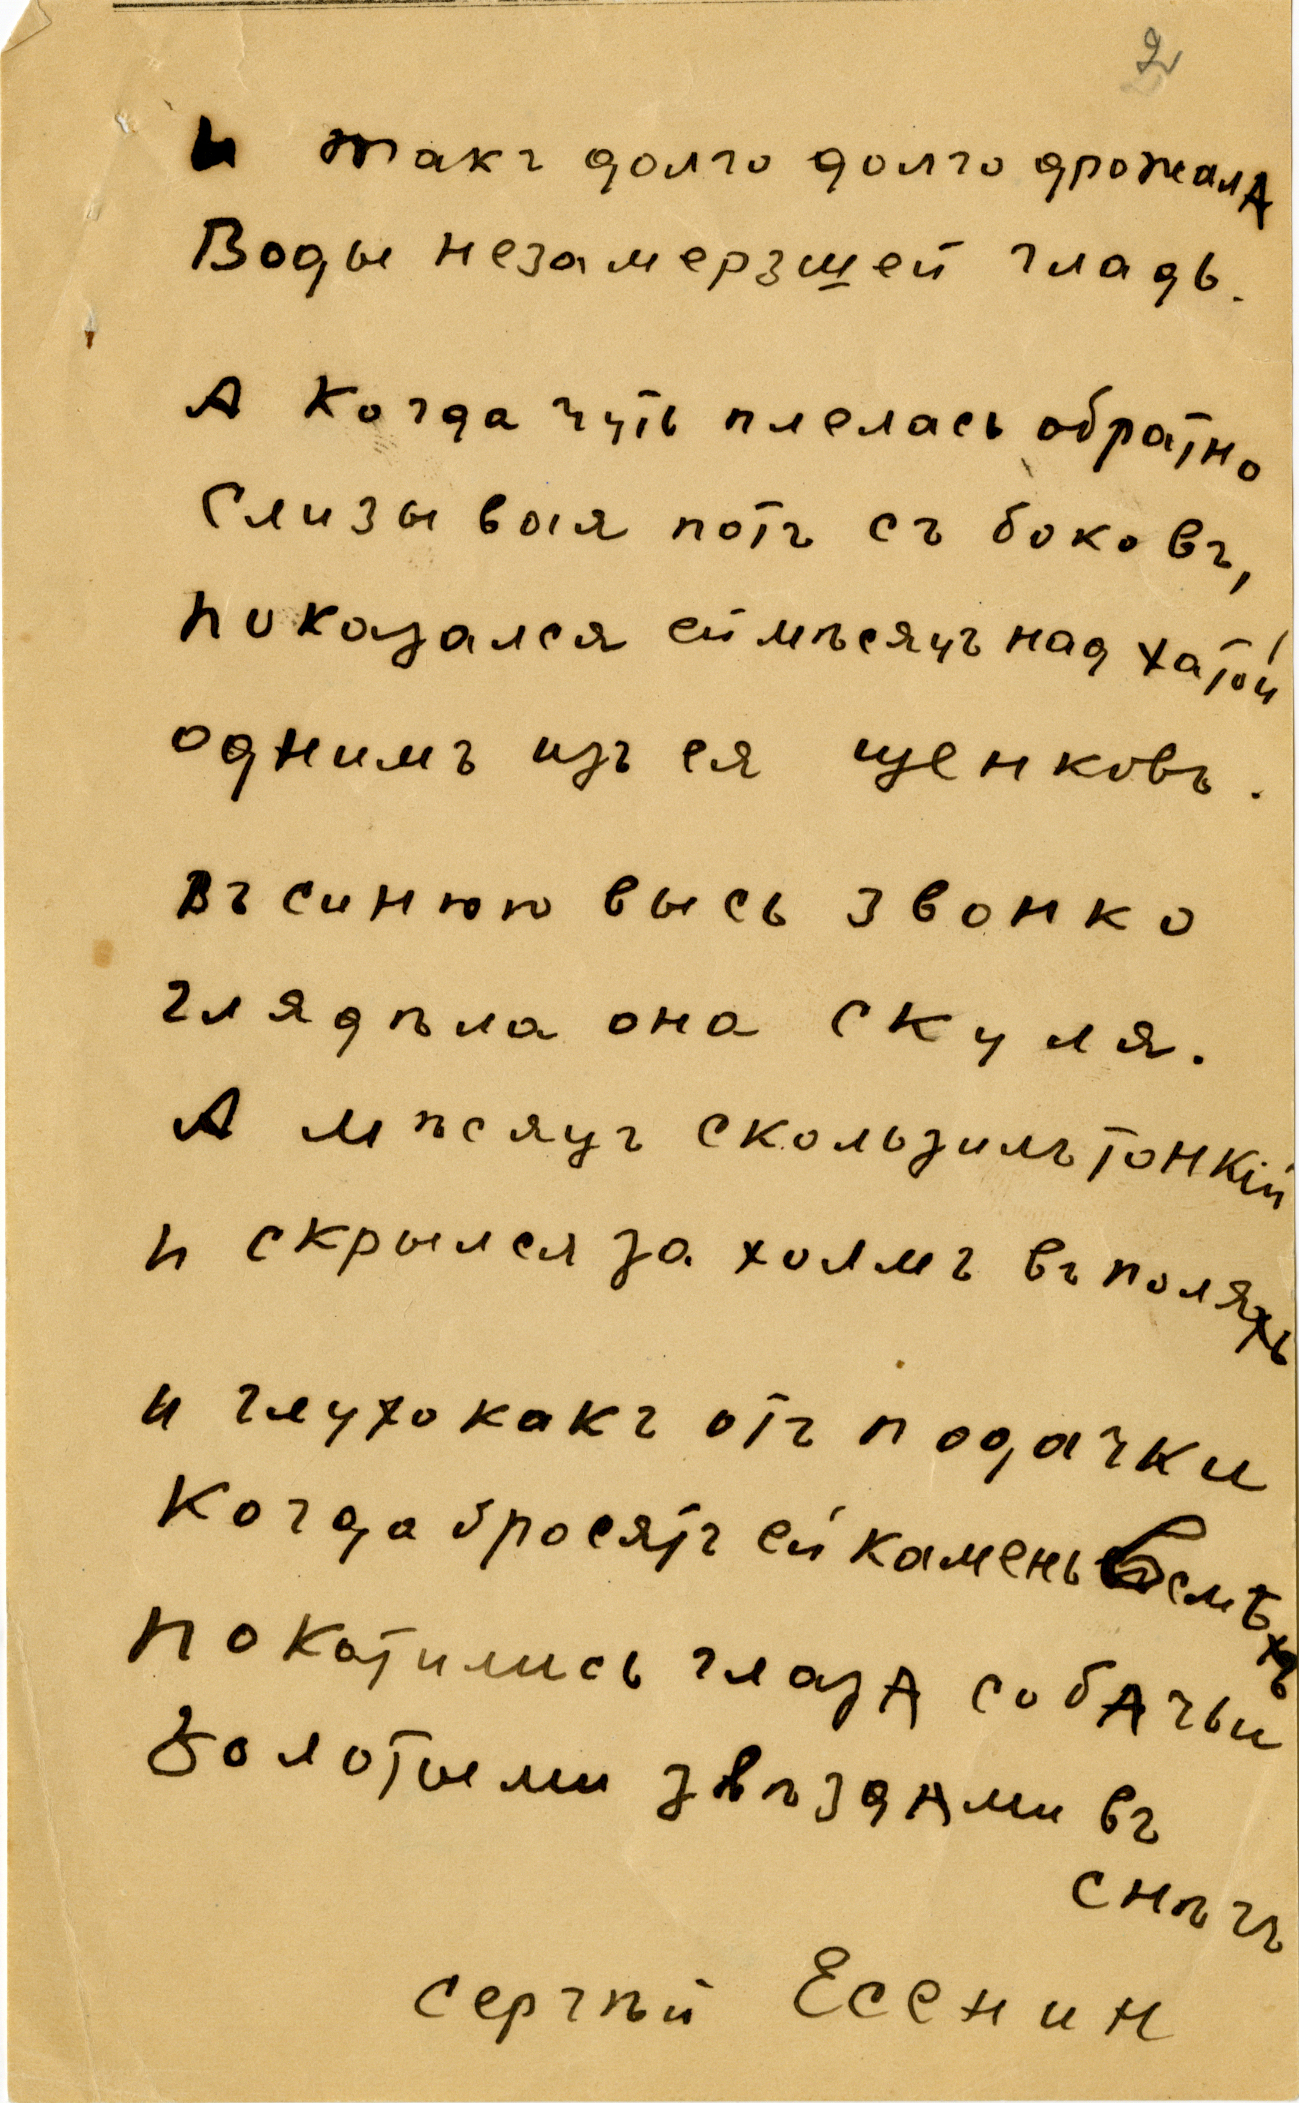 2
И такъ долго долго дрожала
Воды незамерзшей гладь.
А когда чуть плелась обратно
Слизывая потъ съ боковъ,
Показался ей мѣсяцъ над хатой
однимъ изъ ея щенковъ.
Въ синюю высь звонко
глядѣла она скуля.
А мѣсяцъ скользилъ тонкій
и скрылся за холмъ въ поляхъ
и глухо какъ отъ подачки
Когда бросятъ ей камень въ смѣхъ
Покатились глаза собачьи
Золотыми звѣздами въ
снѣгъ
Сергѣй Есенин